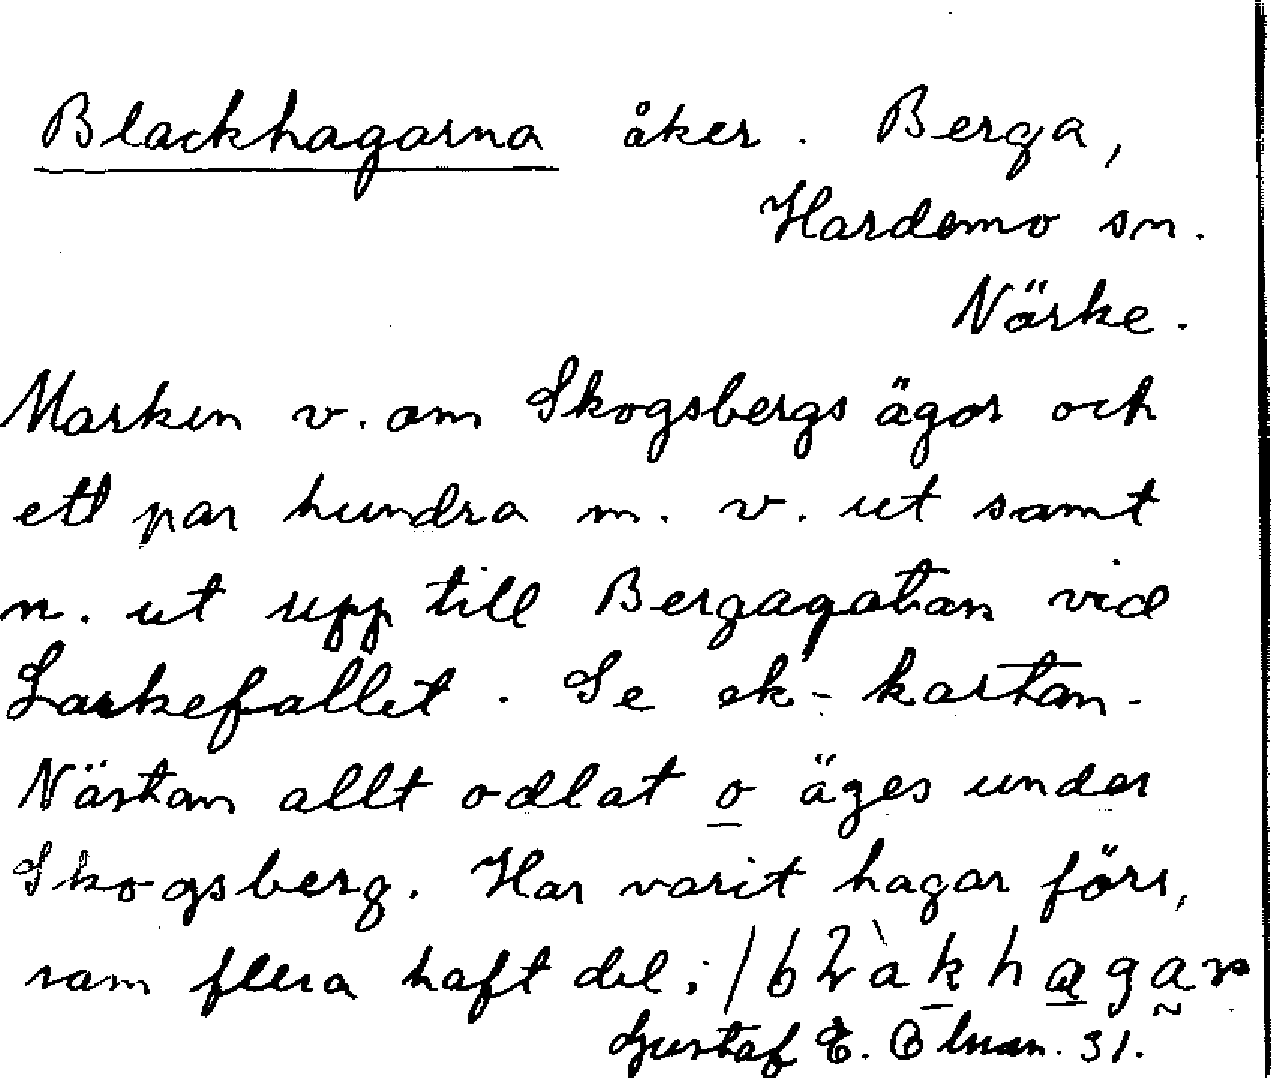 Blackhagarna åker. Berga,
Hardemo sn.
Närke.
Marken v. om Skogsbergs ägor och
ett par hundra m. v. ut samt
n. ut upp till Bergagatan vid
Laskefallet. Se ek-kartan.
Nästan allt odlat o äges under
Skogsberg. Har varit hagar förr,
som flera haft del i
Gustaf E. 31.